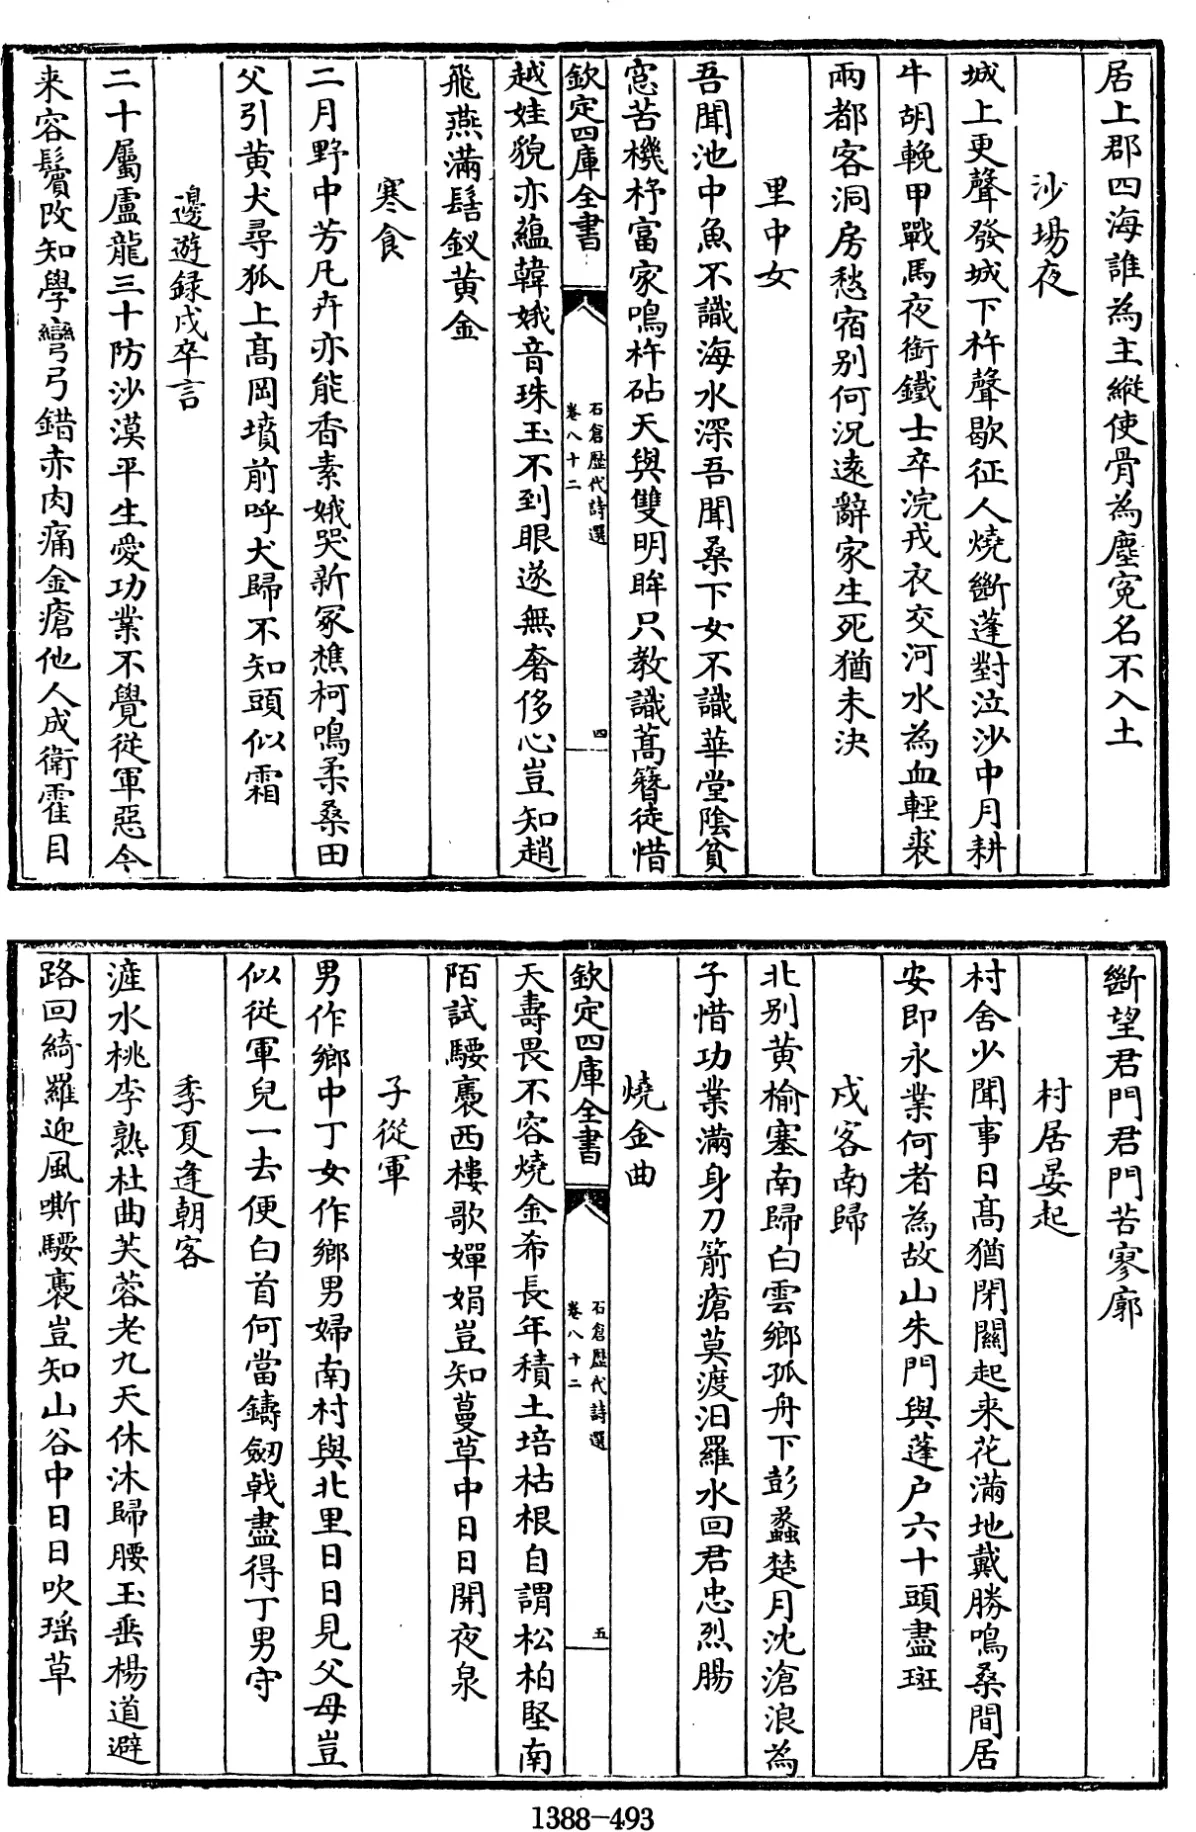 居上郡四海誰為主縱使骨為塵寃名不入土
沙場夜
城上更聲發城下杵聲歇征人燒斷蓬對泣沙中月耕
牛朝輓甲戰馬夜銜鐵士卒浣戎衣交河水為血輕裘
兩都客洞房愁宿别何況逺辭家生死猶未決
里中女
吾聞池中魚不識海水深吾聞桑下女不識華堂陰貧
窻苦機杼富家鳴杵砧天與雙明眸只教識蒿簪徒惜
越娃貌亦蘊韓娥音珠玉不到眼遂無奢侈心豈知趙
飛燕滿髻釵黄金
寒食
二月野中芳凡卉亦能香素娥哭新冢樵柯鳴柔桑田
父引黄犬尋狐上髙岡墳前呼犬歸不知頭似霜
邊遊録戍卒言
二十屬盧龍三十防沙漠平生愛功業不覺從軍惡今
来容鬢改知學彎弓錯赤肉痛金瘡他人成衛霍目
欽定四庫全書
石倉歴代詩選
卷八十二
四
斷望君門君門苦寥廓
村居晏起
村舍少聞事日髙猶閉關起来花滿地戴勝鳴桑間居
安即永業何者為故山朱門與蓬户六十頭盡斑
戍客南歸
北别黄榆塞南歸白雲鄉孤舟下彭蠡楚月沈滄浪為
子惜功業滿身刀箭瘡莫渡汨羅水回君忠烈腸
燒金曲
天壽畏不容燒金希長年積土培枯根自謂松柏堅南
陌試騕褭西樓歌嬋娟豈知蔓草中日日開夜泉
子從軍
男作鄉中丁女作鄉男婦南村與北里日日見父母豈
似從軍兒一去便白首何當鑄劒戟盡得丁男守
季夏逢朝客
滻水桃李熟杜曲芙蓉老九天休沐歸腰玉垂楊道避
路回綺羅迎風嘶騕褭豈知山谷中日日吹瑶草
欽定四庫全書
石倉歴代詩選
卷八十二
五
1388-493